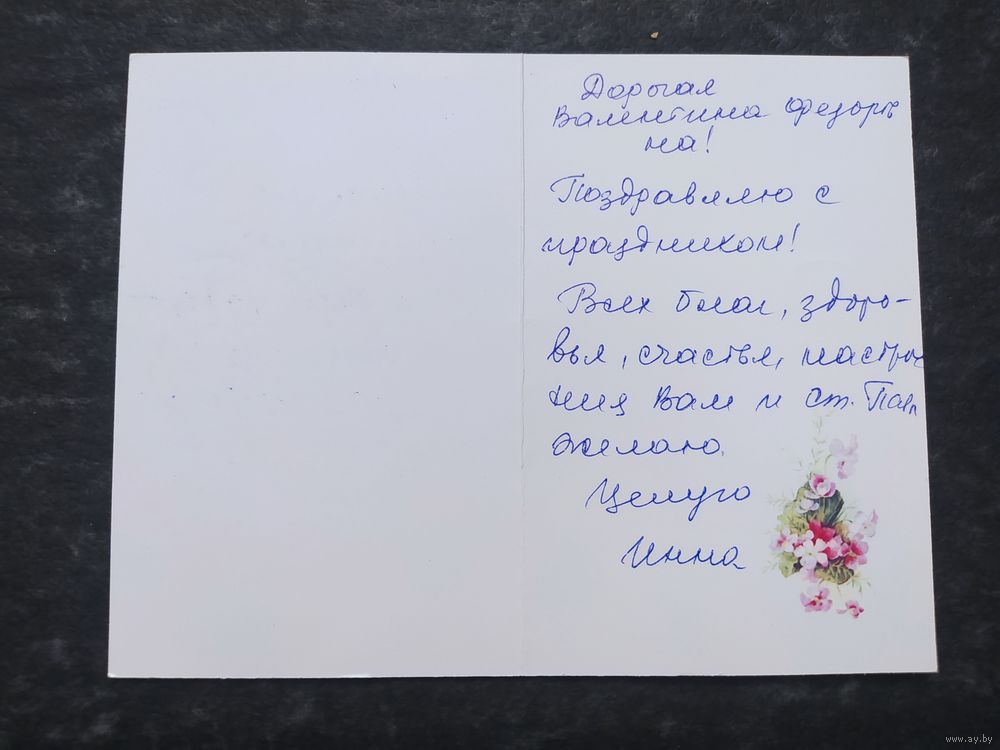 Дорогая
Валентина Федоров
на!
Поздравляю с
праздником!
Всех благ, здоро-
вья, счастья, настрое
ния Вам и ст.
желаю.
Целую
Инна
www.ay.by